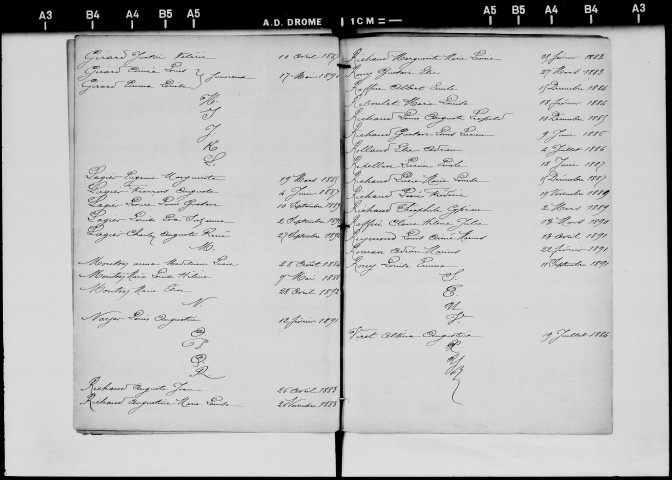 A3 B4 A4 B5 A5 A.D. DROME 1 CM = A5 B5 A4 B4 A3
Girard Justin Valérie 10 avril 188
Girard Emma Louis
Girard Emma Louise } Jumeaux 17 Mai 189
H
I
J
K
L
Lagier Eugénie Marguerite 19 Mars 1885
Lagier Fernand Auguste 4 Juin 1887
Lagier Louis Gustave 10 Septembre 1889
Lagier Louise Eva Suzanne 2 Septembre
Lagier Charles Auguste René 27 Septembre 189
M.
Moutoy anne Louise 28 Août 188
Moutoy Marie Louise Hélène 9 Mai 1888
Moutoy Marie 28 avril 1892
N
Noyer Louis Augustin 12 février 1891
O
P
Q
R
Richaud Auguste Jean 26 avril 1883
Richaud Augustine Marie Louise 20 Novembre 1883
Richaud Marguerite Marie Louise 25 février 1883
Roux Gustave Elie 27 Mars 1883
Raffin Albert Emile 15 Décembre 1884
Reboulet Marie Louise 18 février 1884
Richaud Louis Auguste Léopold 10 Décembre 1885
Richaud Gustave Louis 9 Juin 1886
Rolland Elie Adrien 4 Juillet 1886
Emile 18 Juin 1887
Richaud Marie Louise 15 Décembre 1887
Richaud 14 Novembre 1889
Richaud Théophile Cyprien 2 Mars 1889
Raffin Claire Hélène Julie 13 Mars 1890
Reymond Louis Aimé Marius 13 avril 1891
Roman Adrien Marius 22 février 1891
Roux Louise Emma 11 Septembre 1891
S.
T.
U.
V.
Viret Albina Augustine 19 Juillet 1884
X
Y
Z